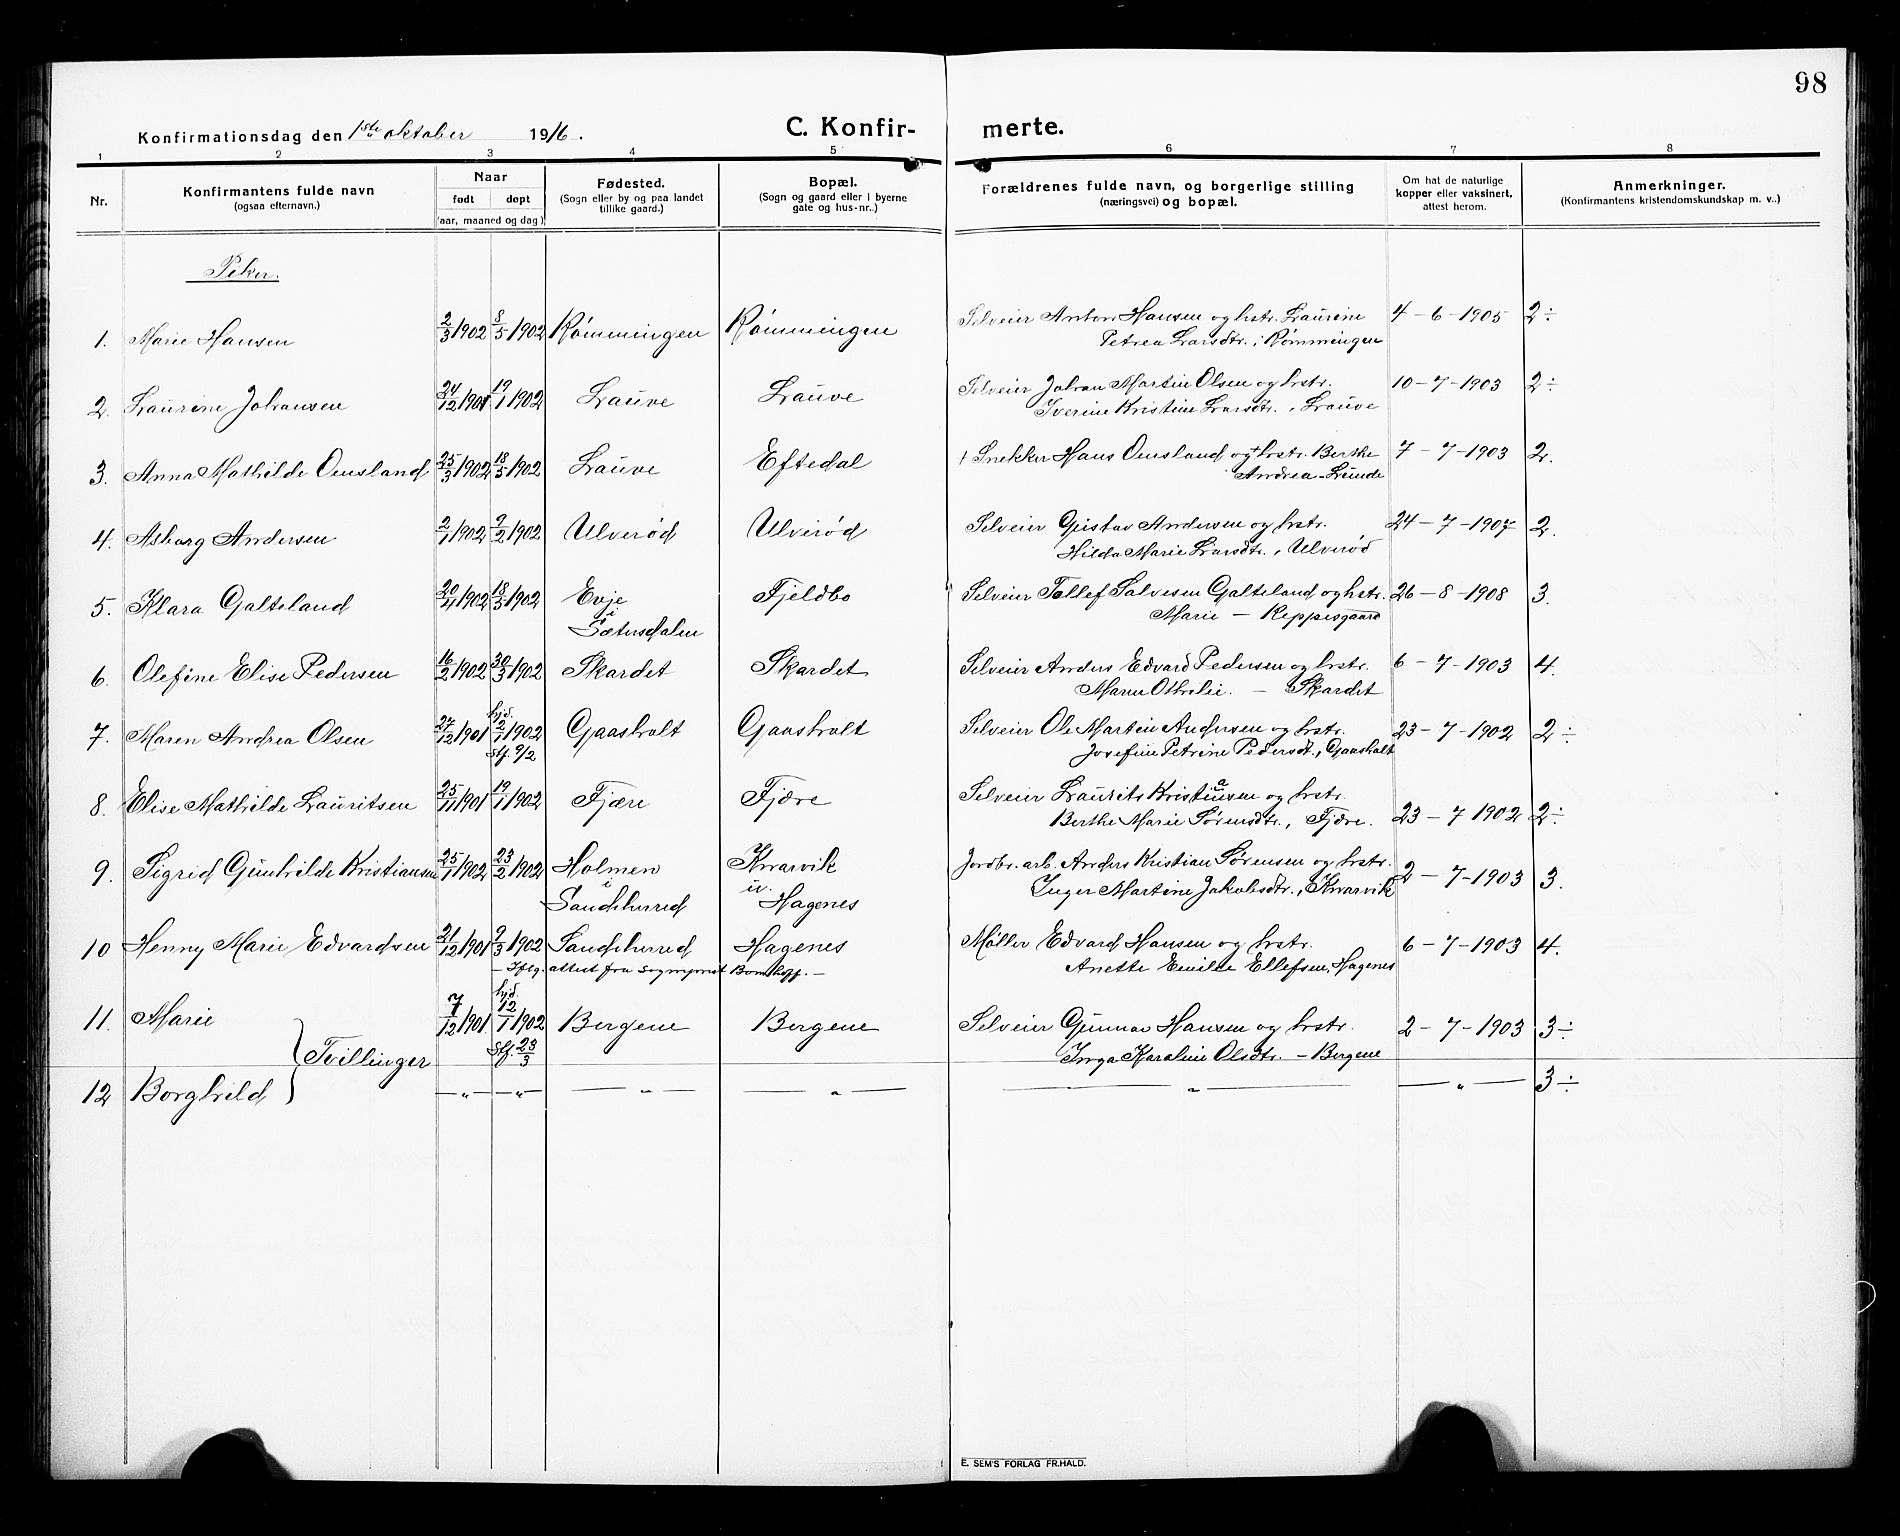 98
Konfirmationsdag den 1ste oktober 1916.
C. Konfir-
merte.
1 2 3 4 5 6 7 8
Nr.
Konfirmantens fulde navn
(ogsaa efternavn.)
Naar
født døpt
(aar, maaned og dag)
Fødested.
(Sogn eller by og paa landet
tillike gaard.)
Bopæl.
(Sogn og gaard eller i byerne
gate og hus-nr..)
Forældrenes fulde navn, og borgerlige stilling
(næringsvei) og bopæl.
Om hat de naturlige
kopper eller vaksinert,
attest herom.
Anmerkninger.
(Konfirmantens kristendomskundskap m. v..)
Piker.
1. Marie Hansen 2/3 1902 8/5 1902 Rømmingen Rømmingen Selveier Anton Hansen og hstr. Laurine 4-6-1905 2÷
Petrea Larsdtr. i Rømmingen
2. Laurine Johansen 24/12 1901 19/1 1902 Lauve Lauve Selveier Johan Martin Olsen og hstr. 10-7-1903 2÷
Iverine Kristine Larsdtr., Lauve
3. Anna Mathilde Omsland 25/3 1902 18/5 1902 Lauve Eftedal † Snekker Hans Omsland og † hstr. Berthe 7-7-1903 2.
Andrea - Lunde
4. Asborg Andersen 2/1 1902 9/2 1902 Ulverød Ulverød Selveier Gustav Andersen og hstr. 24-7-1907 2.
Hilda Marie Larsdtr., Ulverød
5. Klara Galteland 20/4 1902 18/5 1902 Evje Fjeldbo Selveier Tollef Salvesen Galteland og hstr. 26-8-1908 3.
i
Sætersdalen Marie - Keppesgaard
6. Olefine Elise Pedersen 16/2 1902 30/3 1902 Skardet Skardet Selveier Anders Edvard Pedersen og hstr. 6-7-1903 4.
Maren Othilie. - Skardet
hjd.
7. Maren Andrea Olsen 27/12 1901 2/1 1902 Gaasholt Gaasholt Selveier Ole Martin Andersen og hstr. 23-7-1902 2÷
Stf. 9/2 Josefine Petrine Pedersdt., Gaasholt
8. Elise Mathilde Lauritsen 25/11 1901 19/1 1902 Fjære Fjære Selveier Laurits Kristiansen og hstr.
Berthe Marie Sørensdtr., Fjære. 23-7 1902 2÷
9. Sigrid Gunhilde Kristiansen 25/1 1902 23/2 1902 Holmen Kvarvik Jordbr. arb. Anders Kristian Sørensen og hstr. 2-7-1903 3.
i u.
Sandeherred Hagenes Inger Martine Jakobsdtr., Kvarvik
10 Henny Marie Edvardsen 21/12 1901 9/3 1902 Sandeherred Hagenes Møller Edvard Hansen og hstr. 6-7-1903 4.
- Iflg. attest fra sogneprest - Anette Emilie Ellefsen, Hagenes
hjd.
11. Marie 7/12 1901 12/1 1902 Bergene Bergene Selveier Gunnar Hansen og hstr. 2-7-1903 3÷
Tvillinger Stf. 23/3 Inga Karoline Olsdtr. - Bergene
12 Borghild —„— —„— —„— —„— —„— —„— 3÷
E. SEM'S FORLAG FR.HALD.